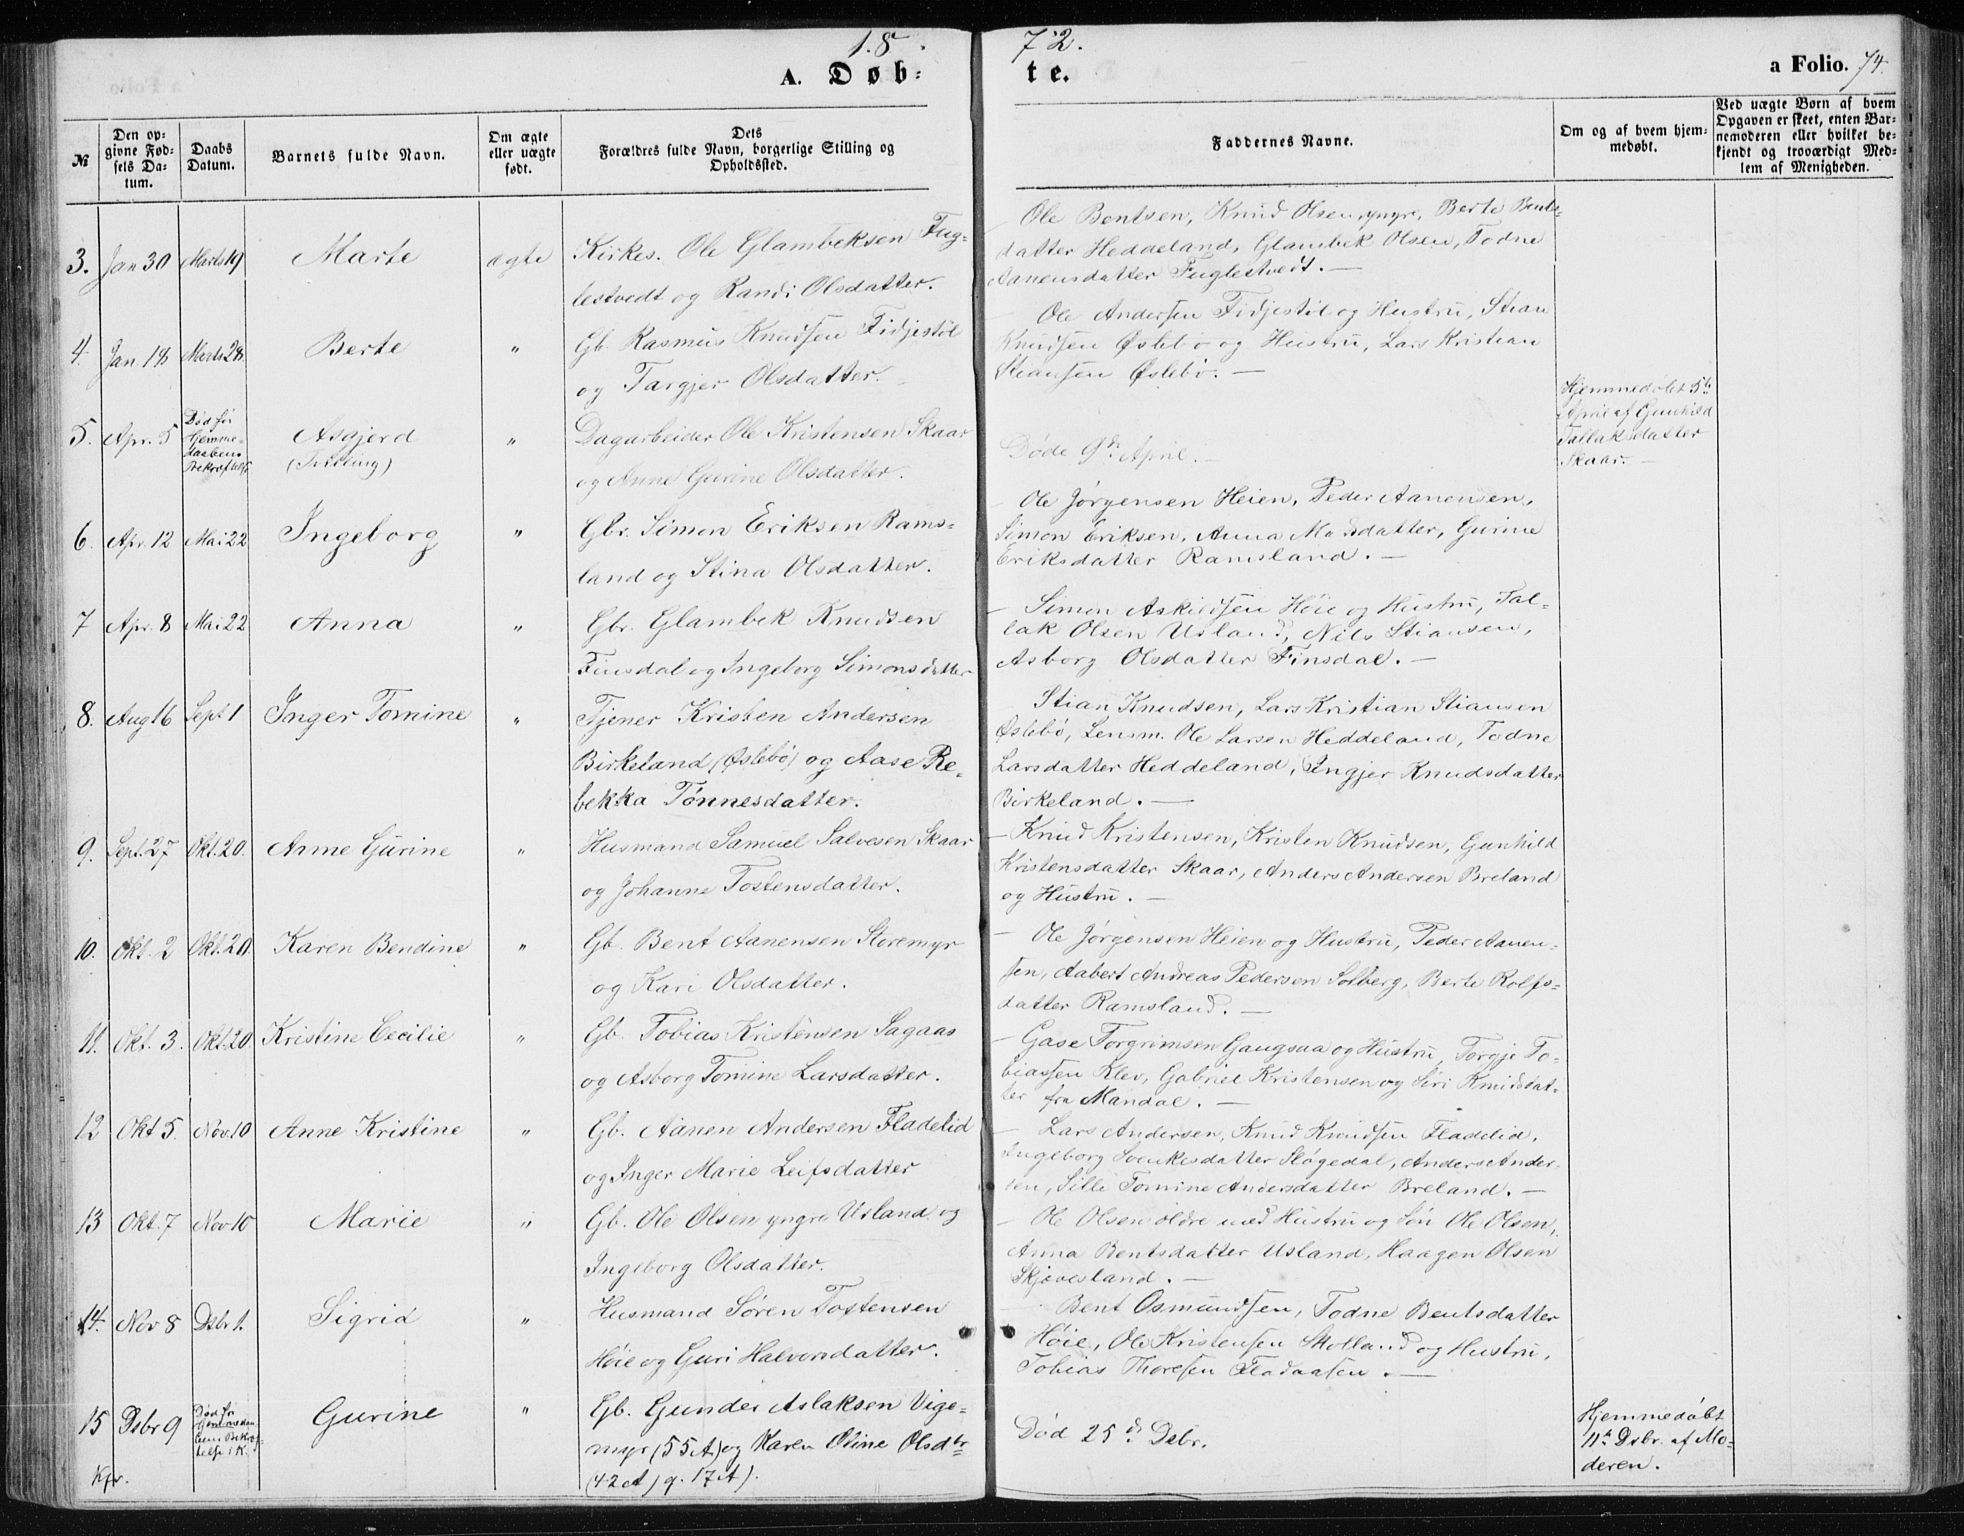 18
72.
A. Døb-
te.
a Folio. 74.
№
Den op-
givne Fød-
sels Da-
tum.
Daabs
Datum.
Barnets fulde Navn.
Om ægte
eller uægte
født.
Dets
Forældres fulde Navn, borgerlige Stilling og
Opholdssted.
Faddernes Navne.
Om og af hvem hjem-
medøbt.
Ved uægte Børn af hvem
Opgaven er skeet, enten Bar-
nemoderen eller hvilket be-
kjendt og troværdigt Med-
lem af Menigheden.
3. Jan 30 Marts 19 Marte ægte
Kirkes. Ole Glambeksen Fug-
lestvedt og Randi Olsdatter.
Ole Bentsen, Knud Olsen yngre, Berte Bents-
datter Heddeland, Glambek Olsen, Todne
Aanensdatter Fuglestvedt. —
4. Jan 18 Marts 28. Berte "
Gb. Rasmus Knudsen Fidjestøl
og Targjer Olsdatter.
Ole Andersen Fidjestøl og Hustru, Stian
Knudsen Øslebø og Hustru, Lars Kristian
Stiansen Øslebø. —
5. Apr. 5 Død før
Hjemme-
daabens
Bekræftelse.
Asgjerd
(Tvilling) "
Dagarbeider Ole Kristensen Skaar
og Anne Gurine Olsdatter.
Døde 9de April. —
Hjemmedøbt 5te
April af Gunhild
Tallaksdatter
Skaar. —
6. Apr. 12 Mai 22 Ingeborg "
Gbr. Simon Eriksen Rams-
land og Stina Olsdatter.
Ole Jørgensen Heien, Peder Aanensen,
Simon Eriksen, Anna Madsdatter, Gurine
Eriksdatter Ramsland. —
7 Apr. 8 Mai 22 Anna "
Gbr. Glambek Knudsen
Finsdal og Ingeborg Simonsdatter
— Simon Askildsen Høie og Hustru, Tal-
lak Olsen Usland, Nils Stiansen,
Asborg Olsdatter Finsdal. —
8. Aug 16 Sept 1 Inger Tomine "
Tjener Kristen Andersen
Birkeland (Øslebø) og Aase Re-
bekka Tønnesdatter.
Stian Knudsen, Lars Kristian Stiansen
Øslebø, Lensm. Ole Larsen Heddeland, Todne
Larsdatter Heddeland, Ingjer Knudsdatter
Birkeland. —
9. Sept. 27 Okt. 20. Anne Gurine "
Husmand Samuel Salvesen Skaar
og Johanne Tostensdatter.
— Knud Kristensen, Kristen Knudsen, Gunhild
Kristensdatter Skaar, Anders Andersen Breland
og Hustru. —
10. Okt. 2 Okt. 20. Karen Bendine "
Gb. Bent Aanensen Storemyr
og Kari Olsdatter.
— Ole Jørgensen Heien og Hustru, Peder Aanen-
sen, Aabert Andreas Pedersen Solberg, Berte Rolfs-
datter Ramsland. —
11. Okt. 3. Okt. 20 Kristine Cecilie "
Gb. Tobias Kristensen Sagaas
og Asborg Tomine Larsdatter.
— Gase Torgrimsen Gaugsaa og Hustru, Torgje To-
biassen Klev, Gabriel Kristensen og Siri Knudsdat-
ter fra Mandal. —
12 Okt 5. Nov. 10 Anne Kristine "
Gb. Aanen Andersen Fladelid
og Inger Marie Leifsdatter
— Lars Andersen, Knud Knudsen Fladelid,
Ingeborg Svenkesdatter Støgedal, Anders Ander-
sen, Sille Tomine Andersdatter Breland. —
13 Okt. 7 Nov 10 Marie "
Gb. Ole Olsen yngre Usland og
Ingeborg Olsdatter.
— Ole Olsen ældre med Hustru og Søn Ole Olsen,
Anna Bentsdatter Usland, Haagen Olsen
Skjævesland. —
14. Nov 8 Dsbr 1. Sigrid "
Husmand Søren Tostensen
Høie og Guri Halvorsdatter.
Bent Osmundsen, Todne Bentsdatter
Høie, Ole Kristensen Stotland og Hustru,
Tobias Thoresen Fladaasen. —
15 Dsbr 9 Død før
Hjemmedaa-
bens Bekræf-
telse i K.
Gurine "
Gb. Gunder Aslaksen Vige-
myr (55 A) og Karen Oline Olsdtr
(42 A) g. 17 A).
Død 25de Dsbr.
Hjemmedøbt
11te Dsbr. af Mo-
deren.
Kfr.